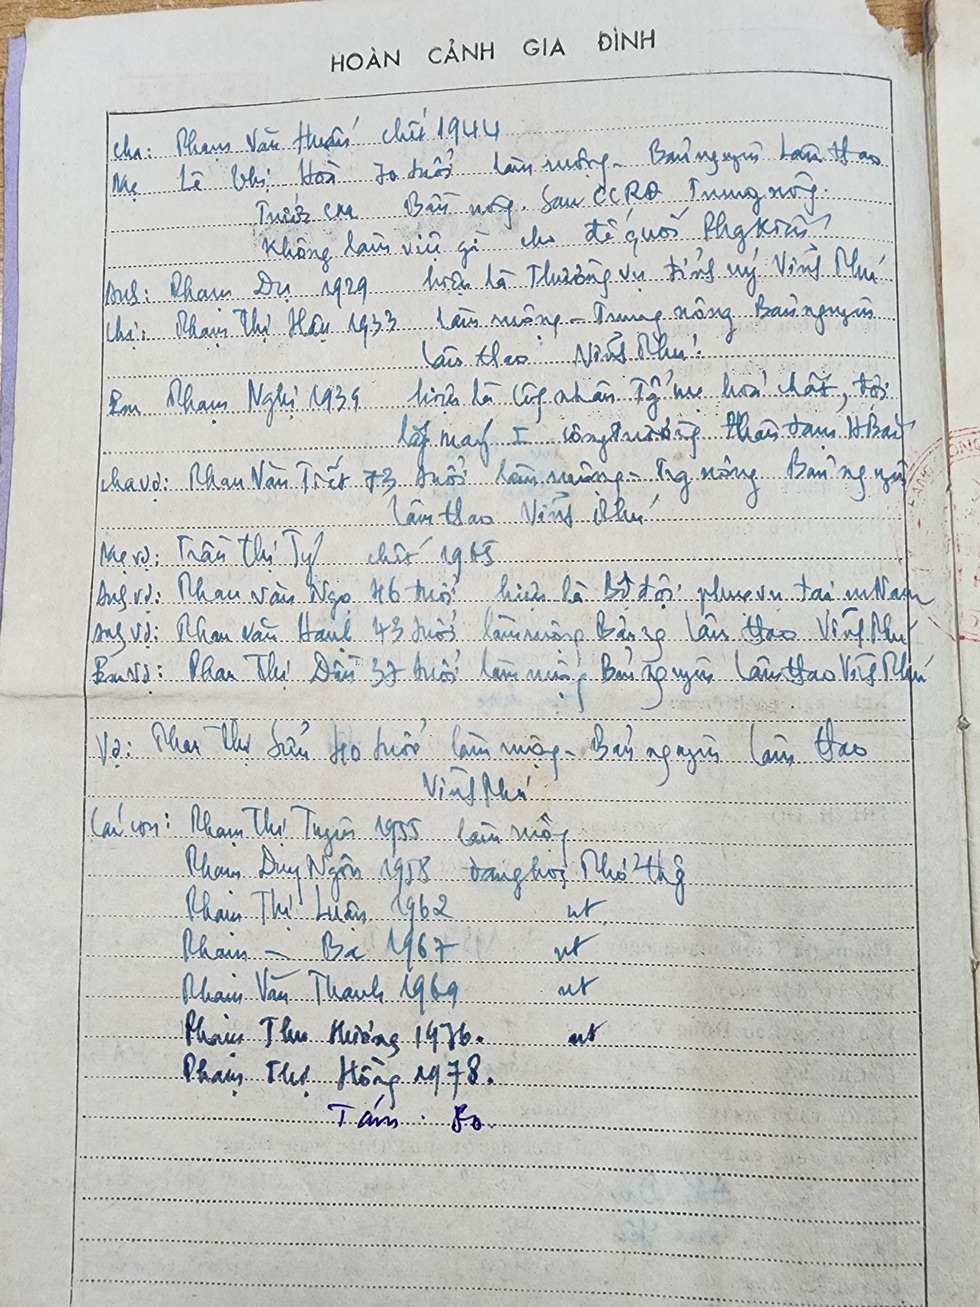 HOÀN CẢNH GIA ĐÌNH
Cha: Phạm Văn Huấn chết 1944
Mẹ Lê Thị Hoà 70 tuổi làm ruộng - Bản nguyên Lâm thao
Trước CM Bần nông. Sau CCRĐ Trung nông.
Không làm việc gì cho đế quốc Phg kiến
Anh: Phạm Dụ 1929 hiện là Thường vụ tỉnh uỷ Vĩnh Phú
Chị: Phạm Thị Hậu 1933 làm ruộng - Trung nông Bản nguyên
Lâm thao Vĩnh Phú.
Em Phạm Nghị 1939 hiện là công nhân hoá chất, đội
lắp máy I công trường
Cha vợ: Phan Văn Triết 73 tuổi làm ruộng - Trg nông Bản nguyên
Lâm thao Vĩnh Phú
Mẹ vợ: Trần Thị Tý chết 1965
Anh vợ: Phan Văn Ngọ 46 tuổi hiện là Bộ đội phục vụ tại m Nam
Anh vợ: Phan Văn Hanh 43 tuổi làm ruộng Bản ng Lâm thao Vĩnh Phú
Em vợ: Phan Thị Dần 37 tuổi làm ruộng Bản nguyên Lâm thao Vĩnh Phú
Vợ: Phan Thị Sửu 40 tuổi làm ruộng - Bản nguyên Lâm thao
Vĩnh Phú
Các con: Phạm Thị Tuyên 1955 làm ruộng
Phạm Duy Ngôn 1958 đang học Phổ thg
Phạm Thị Luân 1962 nt
Phạm - Ba 1967 nt
Phạm Văn Thanh 1969 nt
Phạm Thu Hương 1976. nt
Phạm Thị Hồng 1978.